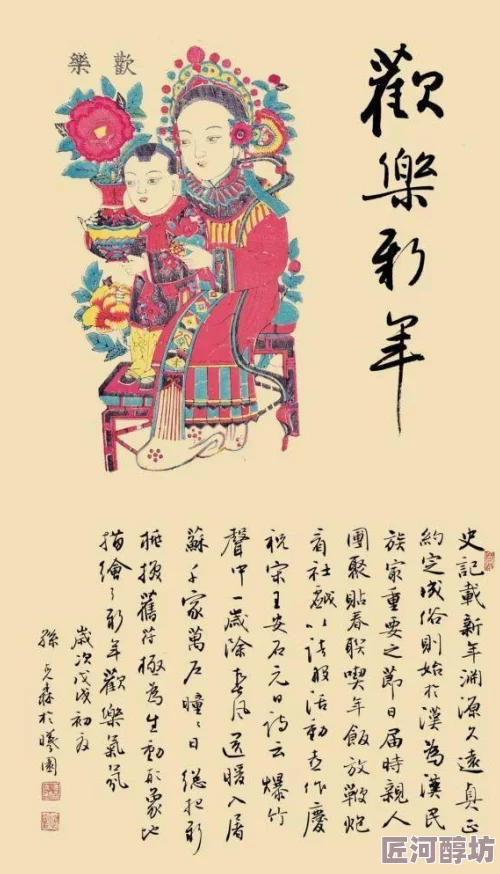 歡樂
歡樂新年
史記載新年淵源久遠真正
約定成俗則始於漢為漢民
族最重要之節日屆時親人
團聚貼春聯喫年飯放鞭炮
看社戲以諸般活動來作慶
祝宋王安石元日詩云爆竹
聲中一歲除春風送暖入屠
蘇千家萬户曈々日總把新
桃換舊符極為生動形象地
描繪了新年歡樂氣氛
歲次戊戌初
孫 森於曦園
匠河醇坊